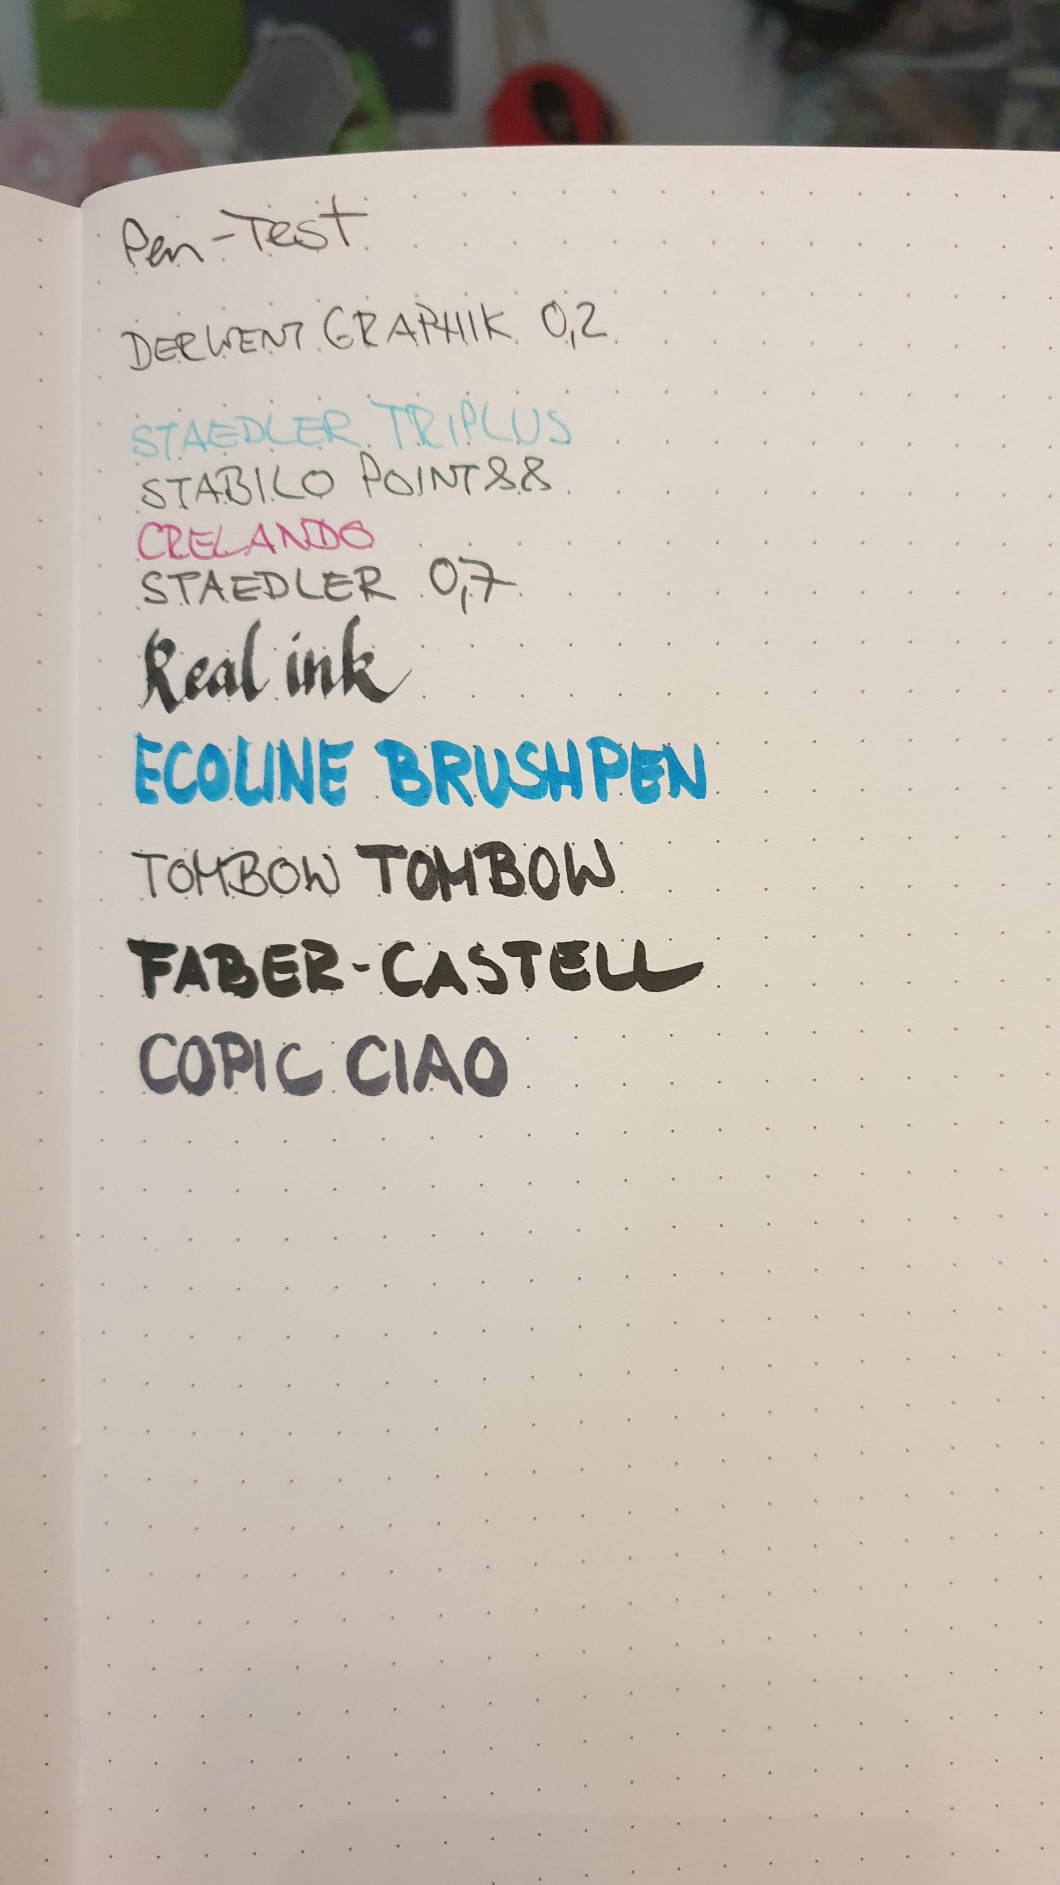 Pen-Test
DERWENT GRAPHIK 0,2
STAEDLER TRIPLUS
STABILO POINT 88
CRELANDO
STAEDLER 0,7
Real ink
ECOLINE BRUSHPEN
TOMBOW TOMBOW
FABER-CASTELL
COPIC CIAO